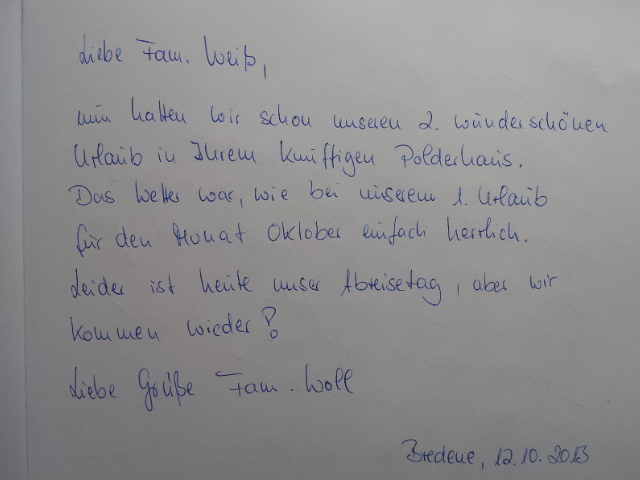 Liebe Fam. Weiß,
nun hatten wir schon unseren 2. wunderschönen
Urlaub in Ihrem knuffigen Polderhaus.
Das Wetter war, wie bei unserem 1. Urlaub
für den Monat Oktober einfach herrlich.
Leider ist heute unser Abreisetag, aber wir
kommen wieder!
Liebe Grüße Fam. Woll
Bredene, 12.10.2013